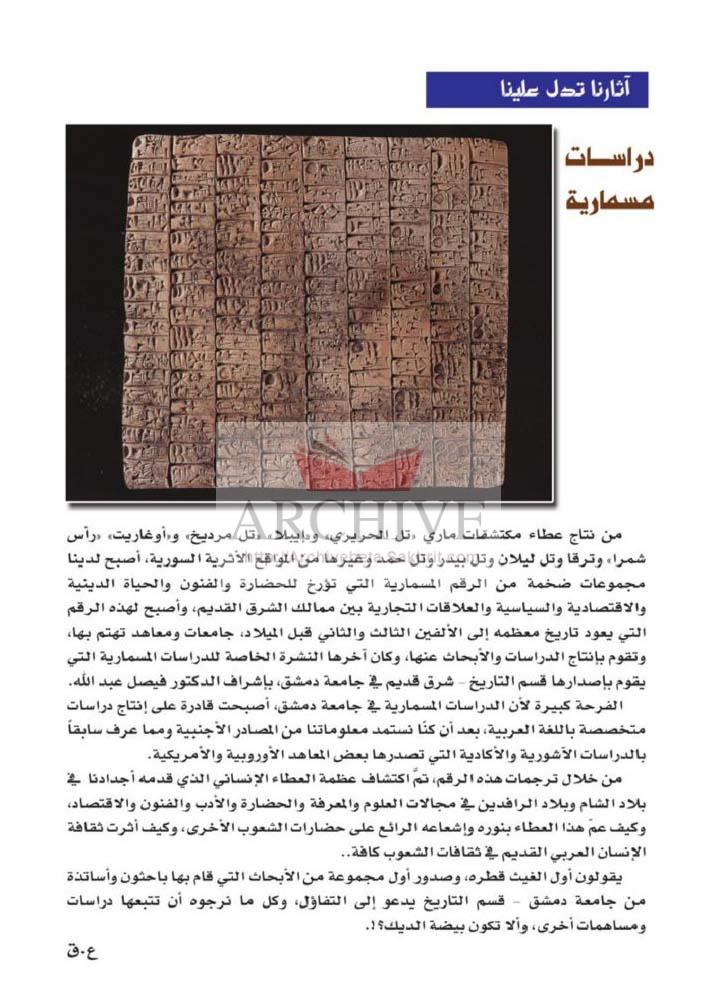 آثارنا تدل علينا
دراسات
مسمارية
من نتاج عطاء مكتشفات ماري «تل الحريري» و«إيبلا» «تل مرديخ» و«أوغاريت» «رأس
شمرا» وترقا وتل ليلان وتل بيدر وتل حمد وغيرها من المواقع الأثرية السورية، أصبح لدينا
مجموعات ضخمة من الرقم المسمارية التي تؤرخ للحضارة والفنون والحياة الدينية
والاقتصادية والسياسية والعلاقات التجارية بين ممالك الشرق القديم، وأصبح لهذه الرقم
التي يعود تاريخ معظمه إلى الألفين الثالث والثاني قبل الميلاد، جامعات ومعاهد تهتم بها،
وتقوم بإنتاج الدراسات والأبحاث عنها، وكان آخرها النشرة الخاصة للدراسات المسمارية التي
يقوم بإصدارها قسم التاريخ - شرق قديم في جامعة دمشق، بإشراف الدكتور فيصل عبد الله.
الفرحة كبيرة لأن الدراسات المسمارية في جامعة دمشق، أصبحت قادرة على إنتاج دراسات
متخصصة باللغة العربية، بعد أن كنّا نستمد معلوماتنا من المصادر الأجنبية ومما عرف سابقاً
بالدراسات الآشورية والأكادية التي تصدرها بعض المعاهد الأوروبية والأمريكية.
من خلال ترجمات هذه الرقم، تمَّ اكتشاف عظمة العطاء الإنساني الذي قدمه أجدادنا في
بلاد الشام وبلاد الرافدين في مجالات العلوم والمعرفة والحضارة والأدب والفنون والاقتصاد،
وكيف عمّ هذا العطاء بنوره وإشعاعه الرائع على حضارات الشعوب الأخرى، وكيف أثرت ثقافة
الإنسان العربي القديم في ثقافات الشعوب كافة..
يقولون أول الغيث قطره، وصدور أول مجموعة من الأبحاث التي قام بها باحثون وأساتذة
من جامعة دمشق - قسم التاريخ يدعو إلى التفاؤل، وكل ما نرجوه أن تتبعها دراسات
ومساهمات أخرى، وألا تكون بيضة الديك؟!.
ع.ق
ARCHIVE
http://Archivebeta.Sakhrit.com